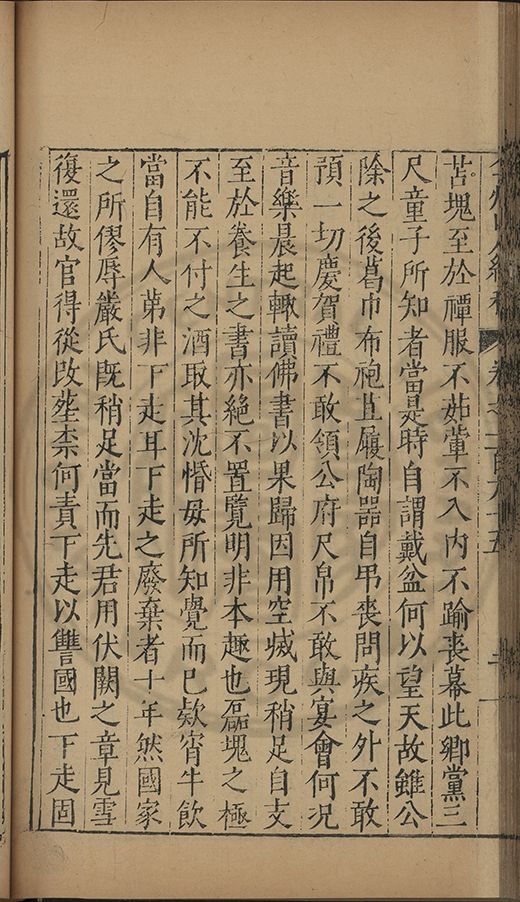 卷之一百九十五 二
苫塊至於禫服不茹葷不入内不踰喪幕此鄉黨三
尺童子所知者當是時自謂戴盆何以望天故雖公
除之後葛巾布袍苴履陶器自弔喪問疾之外不敢
預一切慶賀禮不敢領公府尺帛不敢與宴會何况
音樂晨起輙讀佛書以果歸因用空滅現稍足自支
至於養生之書亦絶不置覽明非本趣也磊塊之極
不能不付之酒取其沈惛毋所知覺而已欬宵牛飲
當自有人苐非下走耳下走之廢棄者十年然國家
之所僇辱嚴氏旣稍足當而先君用伏闕之章見雪
復還故官得從改塟柰何責下走以讐國也下走固